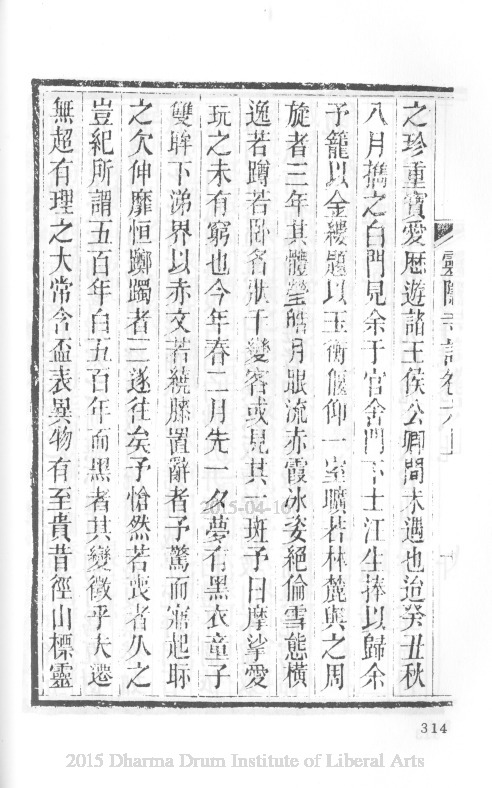 靈隱寺誌卷六上
之珍重寶愛歷遊諸王侯公卿間未遇也迨癸丑秋
八月攜之白門見余于官舍門下士江生捧以歸余
予籠以金縷題以玉衡偃仰一室曠若林麓與之周
旋者三年其體瑩皓月眼流赤霞冰姿絕倫雪態橫
逸若蹲若臥名狀千變客或見其一斑予日摩挲愛
玩之未有窮也今年春二月先一夕夢有黑衣童子
雙眸下涕界以赤文若繞膝置辭者予驚而寤起眎
之欠伸靡恒躑躅者三遂往矣予愴然若喪者久之
豈紀所謂五百年白五百年而黑者其變徵乎大遷
無超有理之大常含盃表異物有至貴昔徑山標靈
314
2015-04-16
2015 Dharma Drum Institute of Liberal Arts